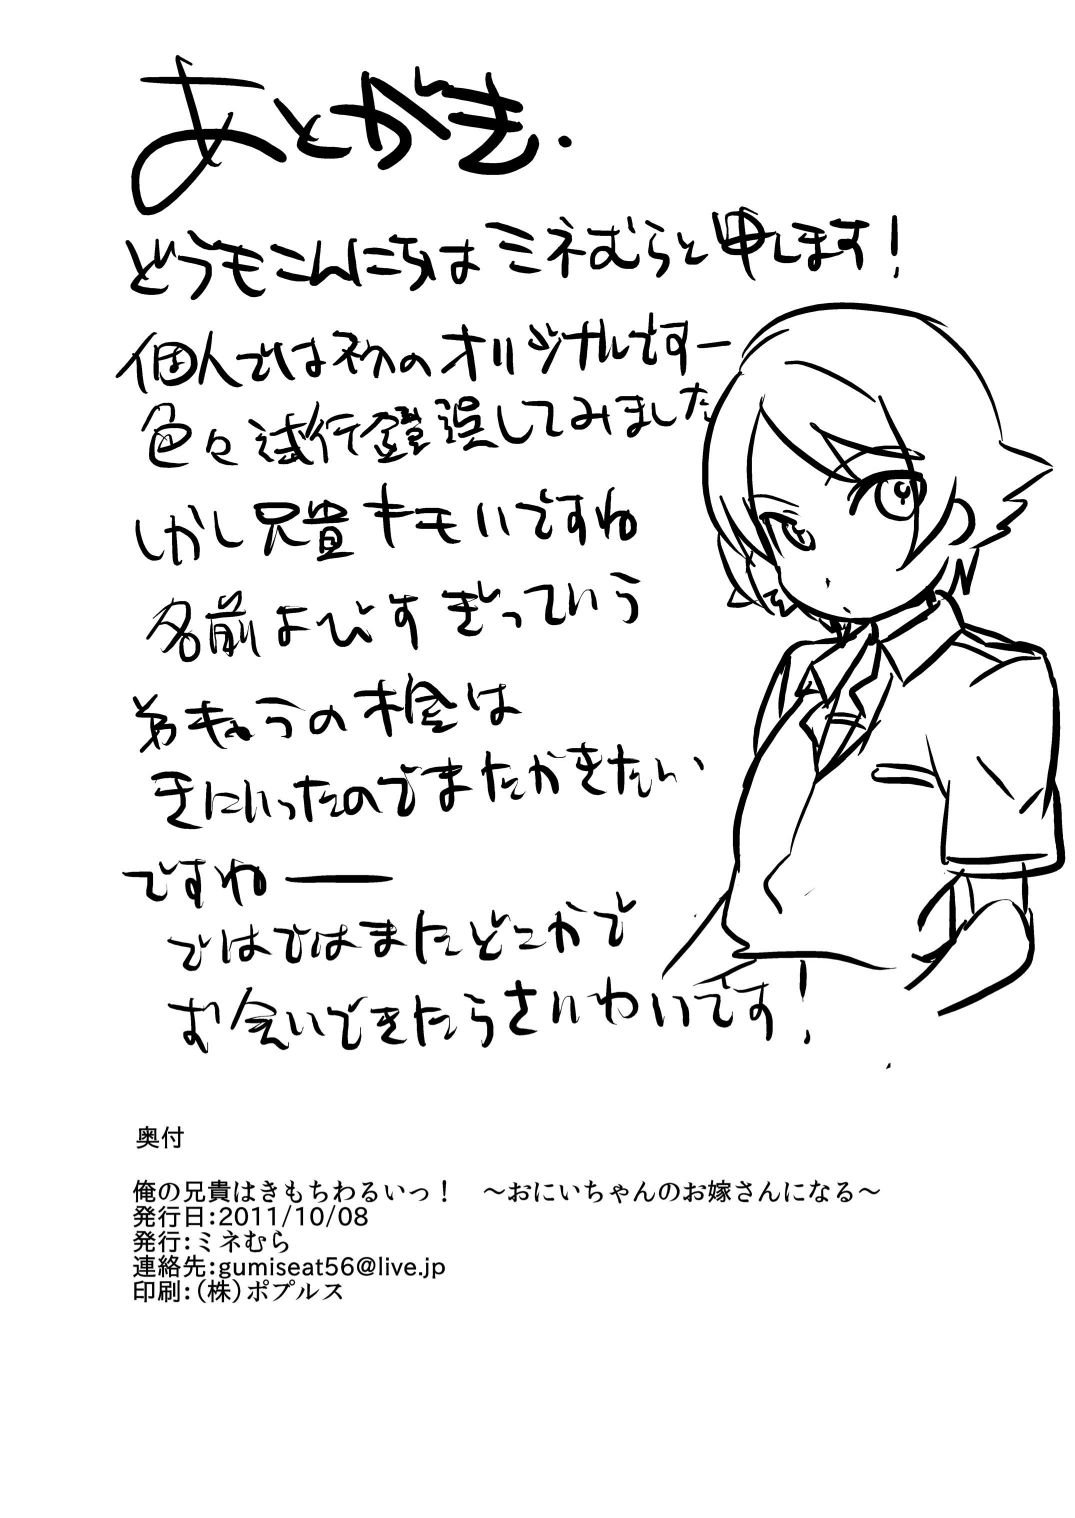 あとがき.
どうもこんにちはミネむらと申します!
個人では初のオリジナルですー
色々試行錯誤してみました
しかし兄貴キモいですね
名前よびすぎっていう
弟きゅうの桧は
きにいったのでまたかきたい
ですねー
ではではまたどこかで
お会いできたらさいわいです!
奥付
俺の兄貴はきもちわるいっ! ～おにいちゃんのお嫁さんになる～
発行日:2011/10/08
発行:ミネむら
連絡先:gumiseat56@live.jp
印刷:(株)ポプルス